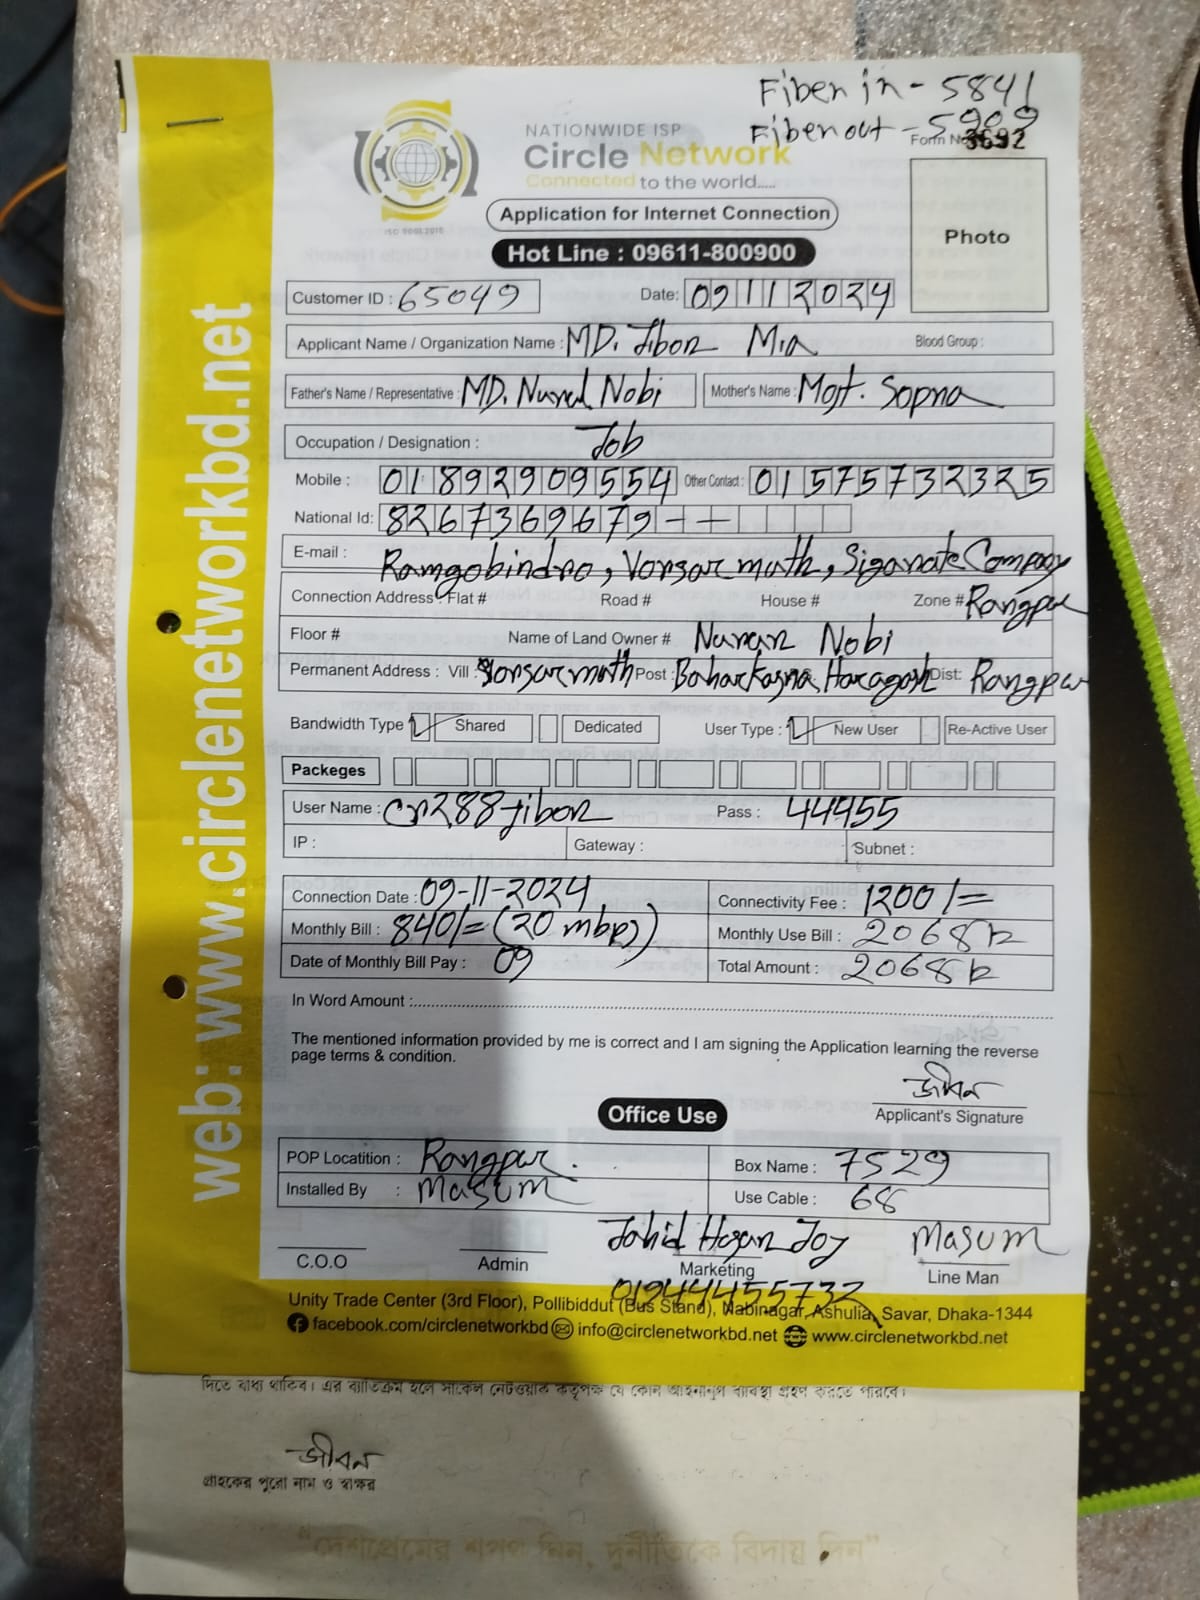 Fiber in - 5841
Fiber out - 5909
NATIONWIDE ISP
Form No 3692
Circle Network
Connected to the world.....
ISO 9001:2015
Application for Internet Connection
Photo
Hot Line : 09611-800900
Customer ID : 65049 Date: 09112024
Applicant Name / Organization Name : MD. Jibon Mia Blood Group :
Father's Name / Representative : MD. Nurul Nobi Mother's Name : Most. Sopna
Occupation / Designation : Job
Mobile : 01892909554 Other Contact : 01575732325
National Id: 8267369679 - -
E-mail : Ramgobindro, Vorsarmath, Siganate Company
Connection Address : Flat # Road # House # Zone # Rangpur
Floor # Name of Land Owner # Nuran Nobi
Permanent Address : Vill : Vorsarmath Post : Baharkasna, Haragash Dist: Rangpur
Bandwidth Type Shared Dedicated User Type : New User Re-Active User
Packeges
User Name : cn288jibon Pass : 44455
IP : Gateway : Subnet :
Connection Date : 09-11-2024 Connectivity Fee : 1200/=
Monthly Bill : 840/= (20 mbps) Monthly Use Bill : 2068 tk
Date of Monthly Bill Pay : 09 Total Amount : 2068 tk
In Word Amount :
The mentioned information provided by me is correct and I am signing the Application learning the reverse
page terms & condition.
জীবন
Applicant's Signature
Office Use
POP Locatition : Rangpur. Box Name : 7529
Installed By : Masum Use Cable : 68
Jahid Hasan Joy Masum
C.O.O Admin Marketing Line Man
01944455732
Unity Trade Center (3rd Floor), Pollibiddut (Bus Stand), Nabinagar, Ashulia, Savar, Dhaka-1344
facebook.com/circlenetworkbd info@circlenetworkbd.net www.circlenetworkbd.net
web: www.circlenetworkbd.net
দিতে বাধ্য থাকিব। এর ব্যতিক্রম হলে সার্কেল নেটওয়ার্ক কর্তৃপক্ষ যে কোন আইনানুগ ব্যবস্থা গ্রহণ করতে পারবে।
জীবন
গ্রাহকের পুরো নাম ও স্বাক্ষর
"দেশপ্রেমের শপথ নিন, দুর্নীতিকে বিদায় দিন"